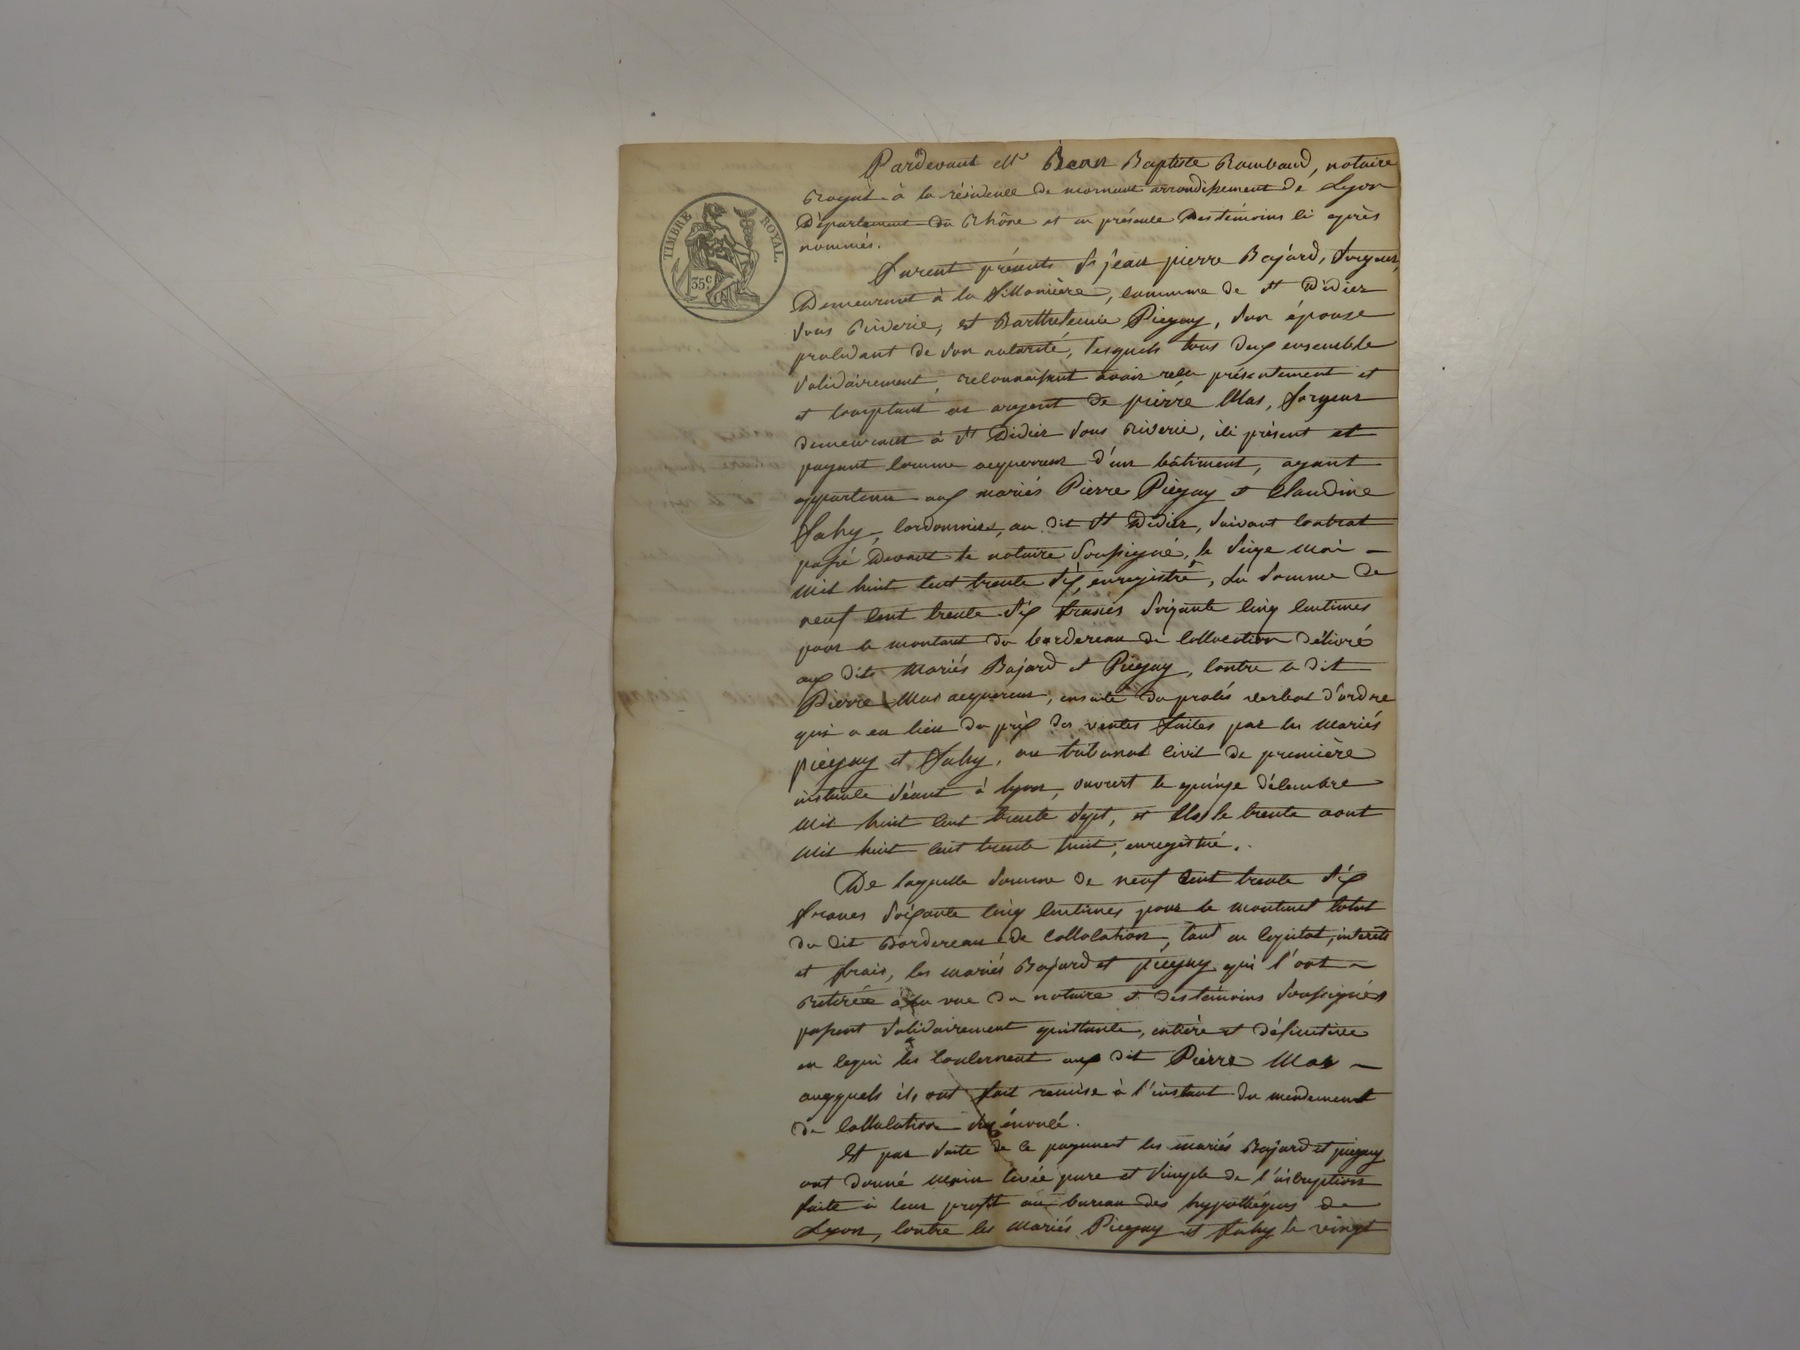 Pardevant Me Jean Baptiste Rambaud, notaire
Royal à la résidence de mornant arrondissement de Lyon
Département du Rhône et en présence des témoins ci après
nommés.
TIMBRE ROYAL.
35 c
Furent présents Sr jean pierre Bajard, forgeur,
Demeurant à la , commune de St Didier
sous Riverie, et Barthelemie Piegay, son épouse
procédant de son autorité, lesquels tous deux ensemble
solidairement, reconnaissent avoir reçu présentement et
et comptant en argent de pierre Mas, forgeur
demeurant à St Didier sous Riverie, ici présent et
payant comme acquereur d'un bâtiment, ayant
appartenu aux mariés Pierre Piégay et Claudine
Fahy, cordonnier, au dit St Didier, suivant contrat
passé devant le notaire soussigné, le seize mai
mil huit cent trente six, enregistré, la somme de
neuf cent trente six francs soixante cinq centimes
pour le montant du bordereau de collocation délivré
aux dits mariés Bajard et Piégay, contre le dit
Pierre Mas acquereur, ensuite du procès verbal d'ordre
qui a eu lieu du prix des ventes faites par les mariés
piegay et Fahy, au tribunal civil de première
instance séant à lyon, ouvert le quinze décembre
mil huit cent trente sept, et clos le trente aout
mil huit cent trente huit, enregistré.
De laquelle somme de neuf cent trente six
francs soixante cinq centimes pour le montant total
du dit Bordereau de collocation, tant en capital, interêts
et frais, les mariés Bajard et piégay qui l'ont
retirée à la vue du notaire et des témoins soussignés
passent solidairement quittance, entière et définitive
en ce qui les concernent aux dit Pierre Mas
auxquels ils ont fait remise à l'instant du mandement
de collocation sus énoncé.
Et par suite de ce payement les mariés Bajard et piegay
ont donné main levée pure et simple de l'inscription
faite à leur profit au bureau des hypothéques de
Lyon, contre les mariés Piegay et Fahy le vingt